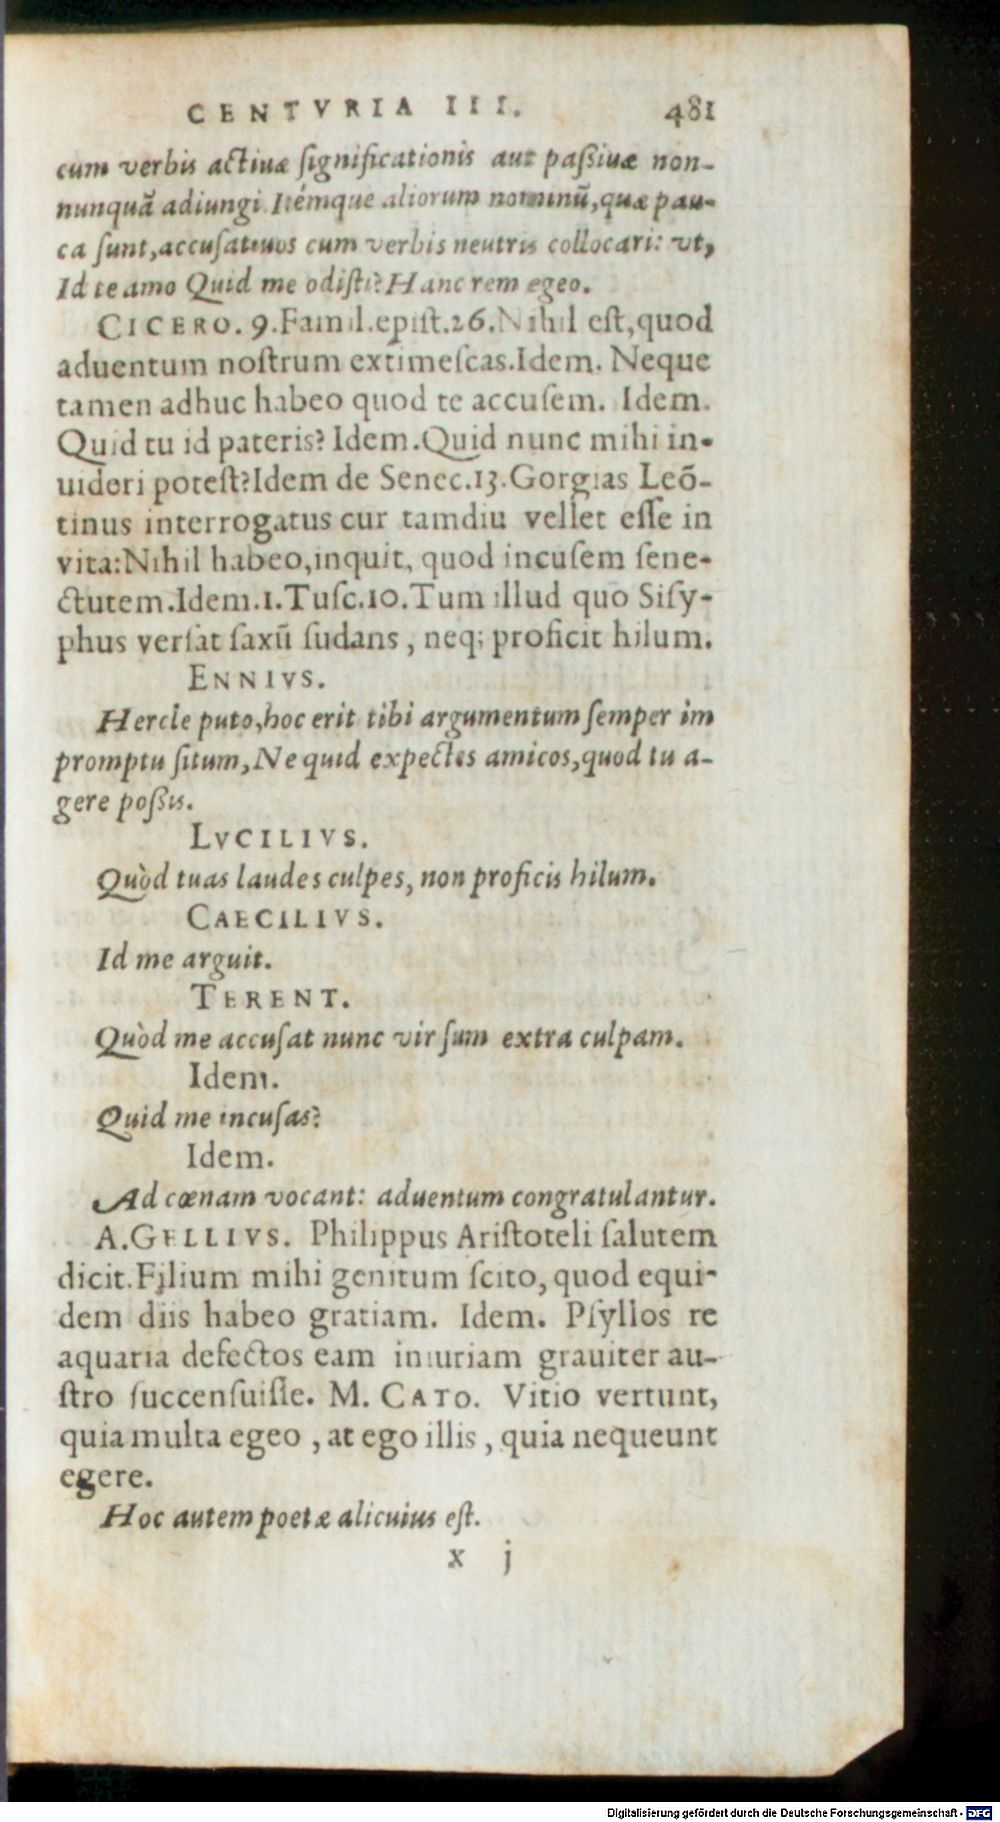 CENTVRIA III. 481
cum verbis actiuæ ſignificationis aut paſsiuæ non-
nunquã adiungi Itémque aliorum nominũ,quæ pau-
ca ſunt,accuſatiuos cum verbis neutris collocari: vt,
Id te amo Quid me odiſti? Hanc rem egeo.
CICERO. 9.Famil.epiſt.26.Nihil eſt,quod
aduentum noſtrum extimeſcas.Idem. Neque
tamen adhuc habeo quod te accuſem. Idem.
Quid tu id pateris? Idem.Quid nunc mihi in-
uideri poteſt?Idem de Senec.13.Gorgias Leõ-
tinus interrogatus cur tamdiu vellet eſſe in
vita:Nihil habeo,inquit, quod incuſem ſene-
ctutem.Idem.1.Tuſc.10.Tum illud quo Siſy-
phus verſat ſaxũ ſudans , neq; proficit hilum.
ENNIVS.
Hercle puto,hoc erit tibi argumentum ſemper im
promptu ſitum,Ne quid expectes amicos,quod tu a-
gere poſsis.
LVCILIVS.
Quòd tuas laudes culpes, non proficis hilum.
CAECILIVS.
Id me arguit.
TERENT.
Quòd me accuſat nunc vir ſum extra culpam.
Idem.
Quid me incuſas?
Idem.
Ad cœnam vocant: aduentum congratulantur.
A.GELLIVS. Philippus Ariſtoteli ſalutem
dicit.Filium mihi genitum ſcito, quod equi-
dem diis habeo gratiam. Idem. Pſyllos re
aquaria defectos eam iniuriam grauiter au-
ſtro ſuccenſuiſſe. M. CATO. Vitio vertunt,
quia multa egeo , at ego illis , quia nequeunt
egere.
Hoc autem poetæ alicuius eſt.
x j
Digitalisierung gefördert durch die Deutsche Forschungsgemeinschaft - DFG